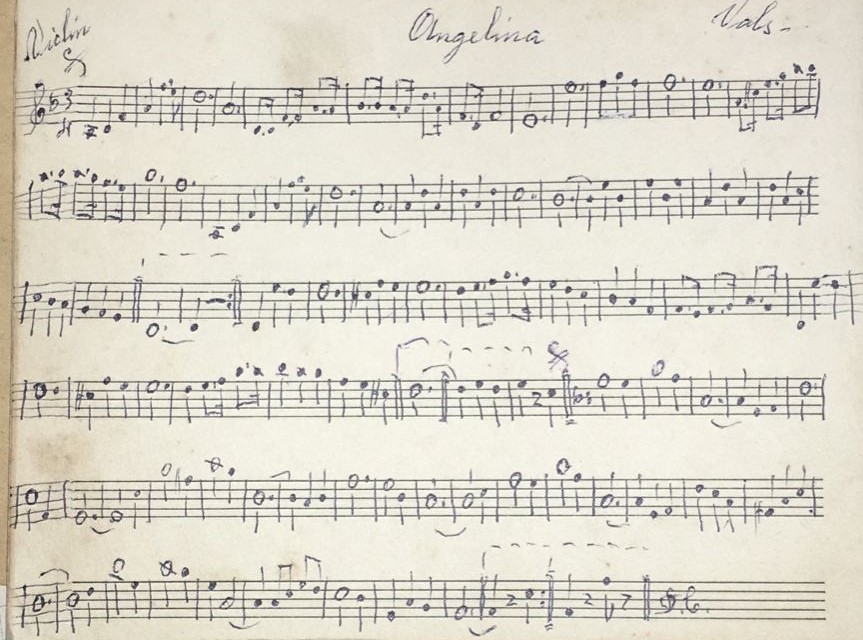 Violin Angelina Vals-
3
D.C.